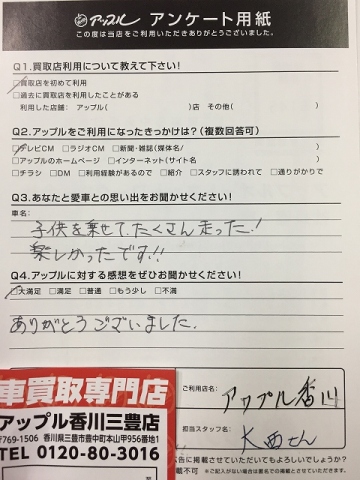 アップル アンケート用紙
この度は当店をご利用いただきありがとうございました。
Q1.買取店利用について教えて下さい!
□買取店を初めて利用
□過去に買取店を利用したことがある
利用した店舗: アップル( )店 その他( )
Q2.アップルをご利用になったきっかけは?(複数回答可)
□テレビCM □ラジオCM □新聞・雑誌(媒体名/ )
□アップルのホームページ □インターネット(サイト名 )
□チラシ □DM □利用経験があるので □紹介 □スタッフに誘われて □通りがかりで
Q3.あなたと愛車との思い出をお聞かせください!
車名:
子供を乗せて、たくさん走った!
楽しかったです!!
Q4.アップルに対する感想をぜひお聞かせください!
□大満足 □満足 □普通 □もう少し □不満
ありがとうございました.
ご利用店名:
アップル香川
担当スタッフ名:
大西さん
広告に掲載させていただいてもよろしいでしょうか?
掲載不可 ※ご記入がない場合は匿名での掲載とさせていただきます。
車買取専門店
アップル香川三豊店
〒769-1506 香川県三豊市豊中町本山甲956番地1
TEL 0120-80-3016